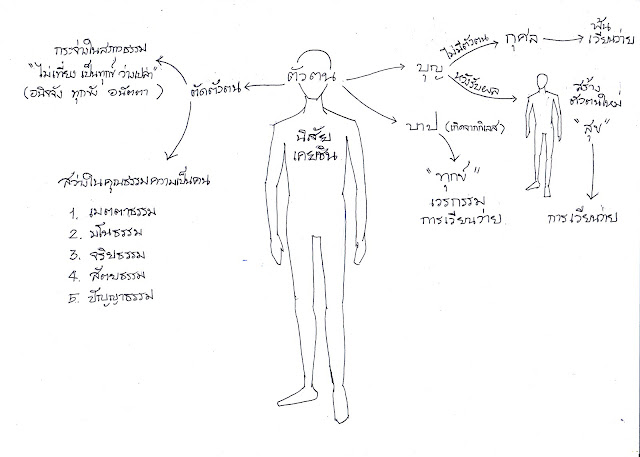 กระจ่างในสภาวธรรม
"ไม่เที่ยง เป็นทุกข์ ว่างเปล่า"
(อนิจจัง ทุกขัง อนัตตา)
ตัดตัวตน
สว่างในคุณธรรมความเป็นคน
1. เมตตาธรรม
2. มโนธรรม
3. จริยธรรม
4. สัตยธรรม
5. ปัญญาธรรม
ตัวตน
นิสัย
เคยชิน
บุญ
ไม่มีตัวตน
กุศล
พ้น
เวียนว่าย
หวังรับผล
สร้าง
ตัวตนใหม่
"สุข"
การเวียนว่าย
บาป (เกิดจากกิเลส)
"ทุกข์"
เวรกรรม
การเวียนว่าย